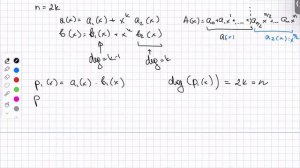 n = 2k
a(x) = a₁(x) + xᵏ a₂(x)
b(x) = b₁(x) + xᵏ b₂(x)
deg = k-1
deg = k
A(x) = a₀ + a₁x + ... + a x^(n/2) ... a x^n
a₁(x)
a₂(x)·x^(n/2)
p₁(x) = a₁(x) · b₁(x)
deg(p₁(x)) = 2k = n
p